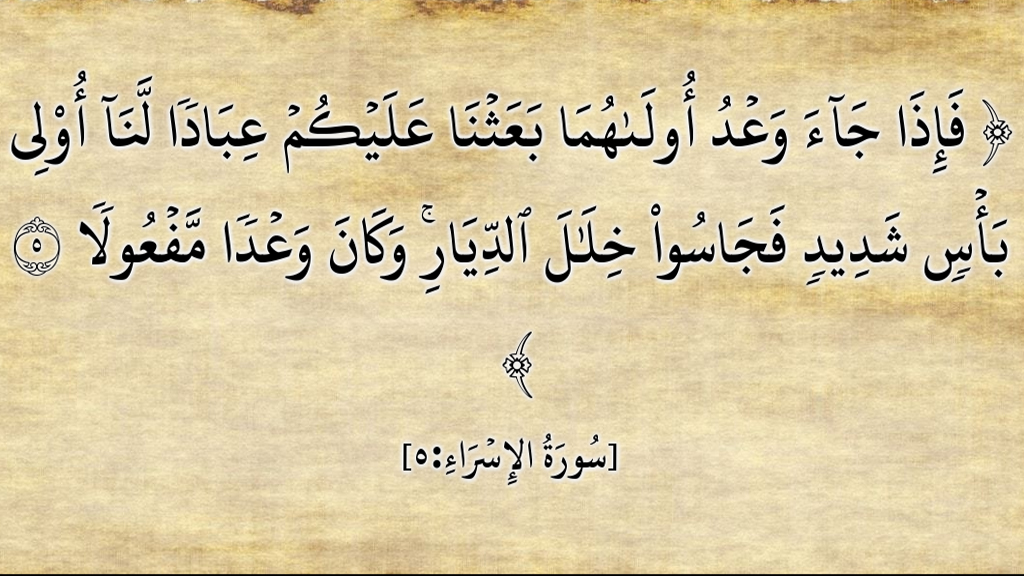 ﴿ فَإِذَا جَآءَ وَعْدُ أُولَىٰهُمَا بَعَثْنَا عَلَيْكُمْ عِبَادًا لَّنَآ أُو۟لِى
بَأْسٍ شَدِيدٍ فَجَاسُوا۟ خِلَـٰلَ ٱلدِّيَارِ ۚ وَكَانَ وَعْدًا مَّفْعُولًا ٥
﴾
[سُورَةُ الإِسْرَاءِ:٥]